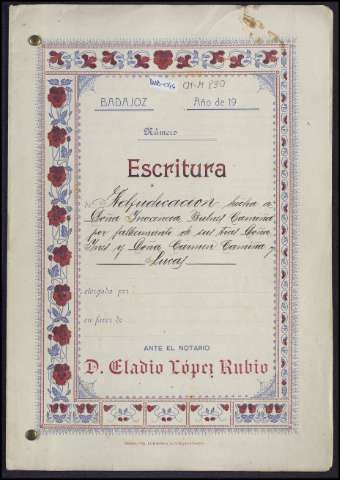 BADAJOZ Año de 19
Número
Escritura
de Adjudicacion hecha a
Doña Inocencia Bulnes Camina
por fallecimiento de sus tias Doña
Ines y Doña Carmen Camina y
Lucas
otorgada por
en favor de
ANTE EL NOTARIO
D. Eladio López Rubio